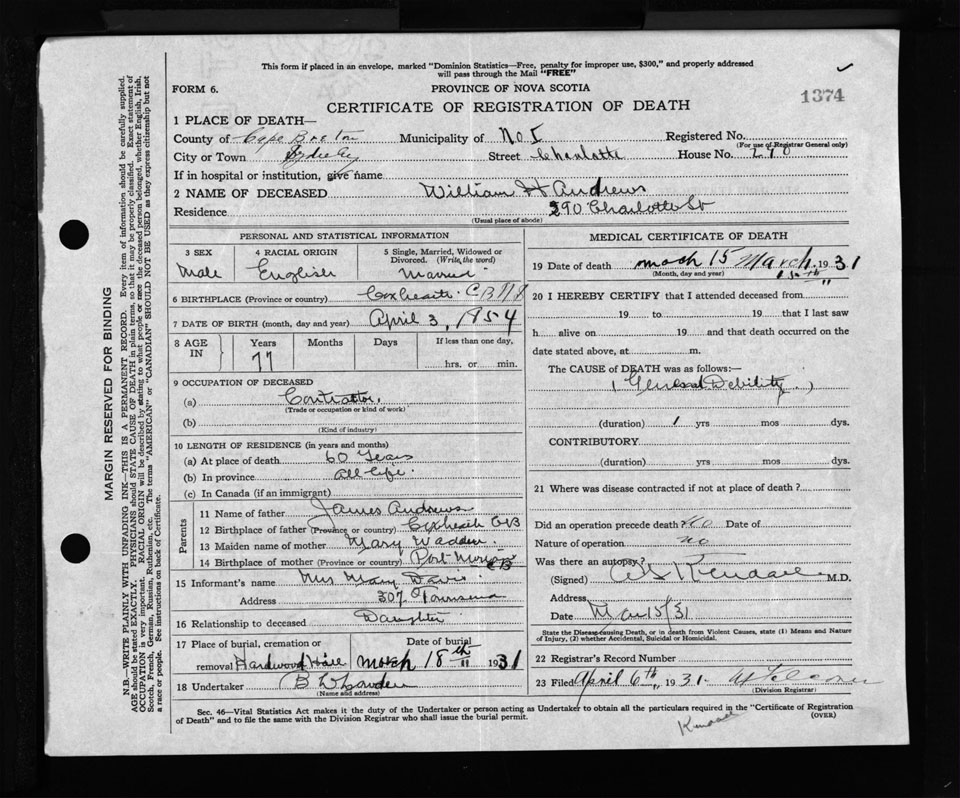 This form if placed in an envelope, marked "Dominion Statistics—Free, penalty for improper use, $300," and properly addressed
will pass through the Mail "FREE"
FORM 6. PROVINCE OF NOVA SCOTIA 1374
CERTIFICATE OF REGISTRATION OF DEATH
1 PLACE OF DEATH—
County of Cape Breton Municipality of No. I Registered No.
(For use of Registrar General only)
City or Town Sydney Street Charlotte House No.
If in hospital or institution, give name
2 NAME OF DECEASED William H Andrews
Residence 290 Charlotte St
(Usual place of abode)
PERSONAL AND STATISTICAL INFORMATION
3 SEX 4 RACIAL ORIGIN 5 Single, Married, Widowed or Divorced. (Write the word)
Male English Married
6 BIRTHPLACE (Province or country) Coxheath C B N S
7 DATE OF BIRTH (month, day and year) April 3, 1954
8 AGE IN Years Months Days If less than one day,
77 hrs. or min.
9 OCCUPATION OF DECEASED
(a) Contractor
(Trade or occupation or kind of work)
(b)
(Kind of industry)
10 LENGTH OF RESIDENCE (in years and months)
(a) At place of death 60 Years
(b) In province All life
(c) In Canada (if an immigrant)
Parents
11 Name of father James Andrews
12 Birthplace of father (Province or country) Coxheath CB
13 Maiden name of mother Mary Wadden
14 Birthplace of mother (Province or country) Port Morien CB
15 Informant's name Mrs Mary Davis
Address 307
16 Relationship to deceased Daughter
17 Place of burial, cremation or Date of burial
removal Hardwood Hill March 18th 1931
18 Undertaker
(Name and address)
MEDICAL CERTIFICATE OF DEATH
19 Date of death March 15 March 15th 1931
(Month, day and year)
20 I HEREBY CERTIFY that I attended deceased from
19 to 19 that I last saw
h alive on 19 and that death occurred on the
date stated above, at m.
The CAUSE OF DEATH was as follows:—
(General Debility)
(duration) 1 yrs mos dys.
CONTRIBUTORY
(duration) yrs. mos. dys.
21 Where was disease contracted if not at place of death?
Did an operation precede death? No Date of
Nature of operation no
Was there an autopsy?
(Signed) Kendall M.D.
Address
Date Mar 15/31
State the Disease causing Death, or in death from Violent Causes, state (1) Means and Nature
of Injury, (2) whether Accidental, Suicidal or Homicidal.
22 Registrar's Record Number
23 Filed April 6th, 1931
(Division Registrar)
Sec. 46—Vital Statistics Act makes it the duty of the Undertaker or person acting as Undertaker to obtain all the particulars required in the "Certificate of Registration
of Death" and to file the same with the Division Registrar who shall issue the burial permit. (OVER)
Kendall
MARGIN RESERVED FOR BINDING
N.B.—WRITE PLAINLY WITH UNFADING INK—THIS IS A PERMANENT RECORD. Every item of information should be carefully supplied.
AGE should be stated EXACTLY. PHYSICIANS should STATE CAUSE OF DEATH in plain terms, so that it may be properly classified. Exact statement of
OCCUPATION is very important. RACIAL ORIGIN will be described by stating to what people or race the deceased person belonged, whether English, Irish,
Scotch, French, German, Russian, Ruthenian, etc. The terms "AMERICAN" or "CANADIAN" SHOULD NOT BE USED as they express citizenship but not
a race or people. See instructions on back of Certificate.